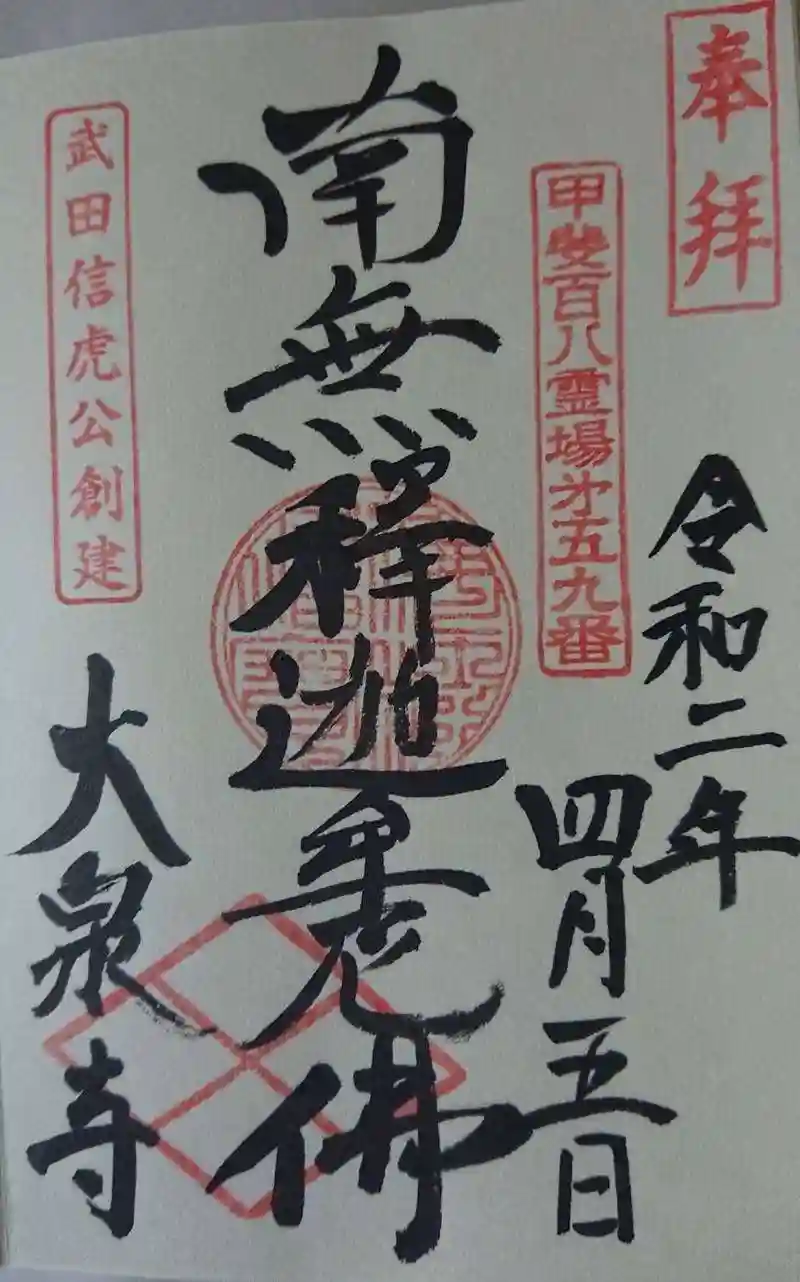 奉拜
令和二年
四月五日
甲斐百八霊場㐧五九番
南無釋迦牟尼佛
武田信虎公創建
大泉寺